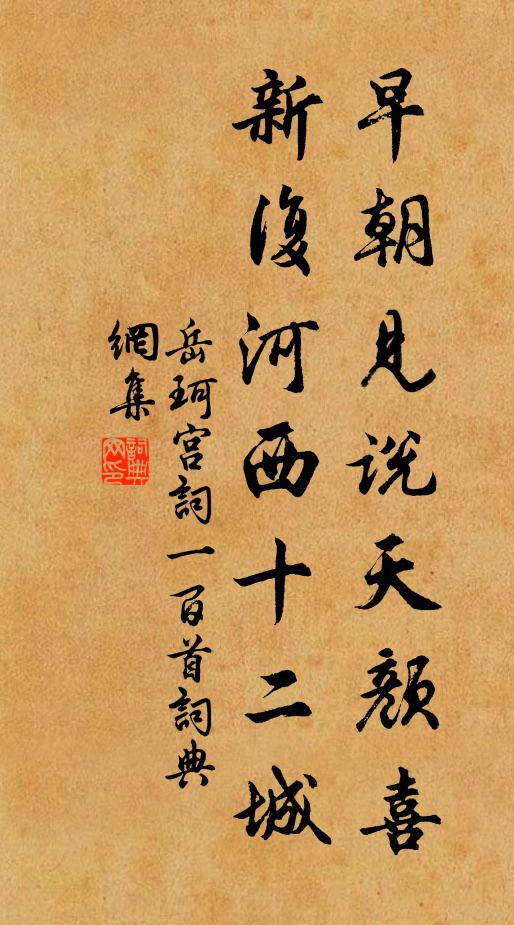 早朝見説天顔喜
新復河西十二城
岳珂宫詞一百首詞典
網集
詞典網印